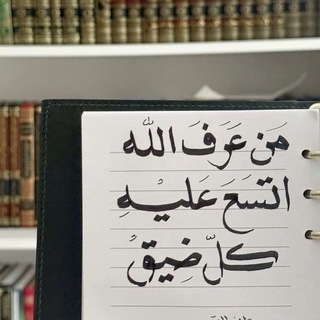 مَن عَرَفَ اللّٰه
اتسَعَ عَليْهِ
كلّ ضِيقٍ